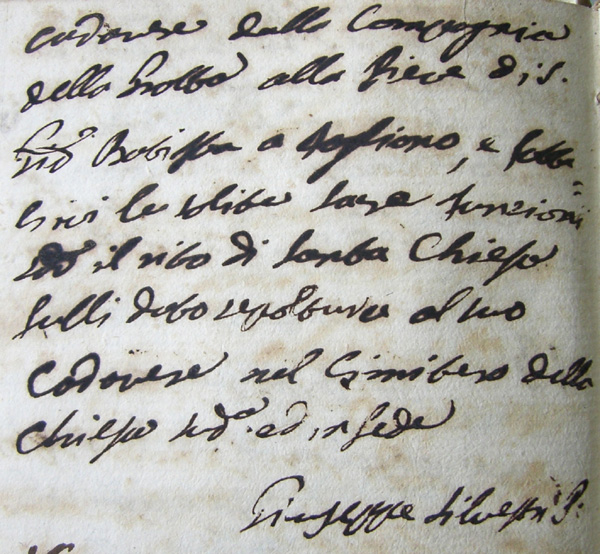 cadavere dalla Compagnia
della Grotta alla Pieve di S.
Gio: Batista a, e fatte-
gnivi le solite sacre funzioni
sedo il rito di Santa Chiesa
fulli dato sepoltura al suo
Cadavere nel Cimitero della
Chiesa sud.a ed in fede
Giuseppe Silvestri P: